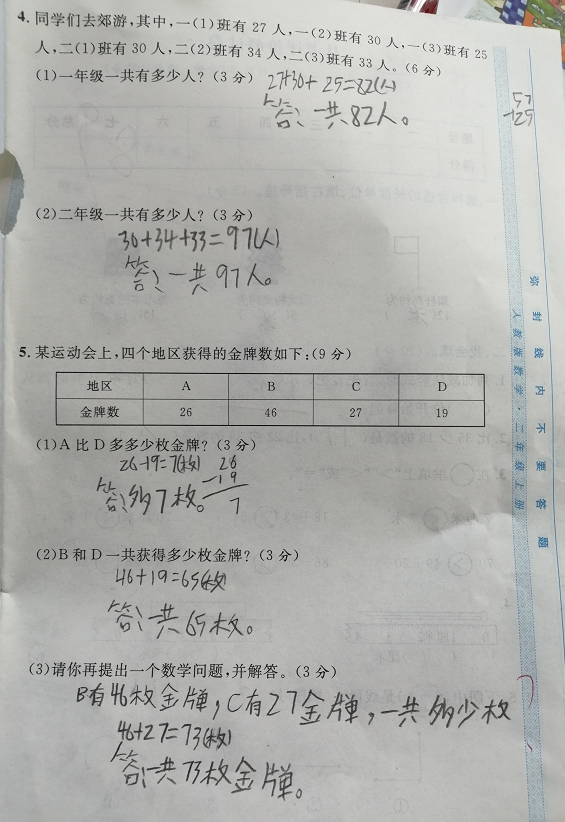 4. 同学们去郊游,其中,一(1)班有 27 人,一(2)班有 30 人,一(3)班有 25
人,二(1)班有 30 人,二(2)班有 34 人,二(3)班有 33 人。(6 分)
(1)一年级一共有多少人?(3 分) 27+30+25=82(人)
答:一共82人。
57
-25
(2)二年级一共有多少人?(3 分)
30+34+33=97(人)
答:一共97人。
5. 某运动会上,四个地区获得的金牌数如下:(9 分)
地区 A B C D
金牌数 26 46 27 19
(1)A 比 D 多多少枚金牌?(3 分)
26-19=7(枚) 26
-19
7
答:多7枚。
(2)B 和 D 一共获得多少枚金牌?(3 分)
46+19=65(枚)
答:一共65枚。
(3)请你再提出一个数学问题,并解答。(3 分)
B有46枚金牌,C有27金牌,一共多少枚
46+27=73(枚)
答:一共73枚金牌。
弥封线内不要答题
人教版数学·二年级上册